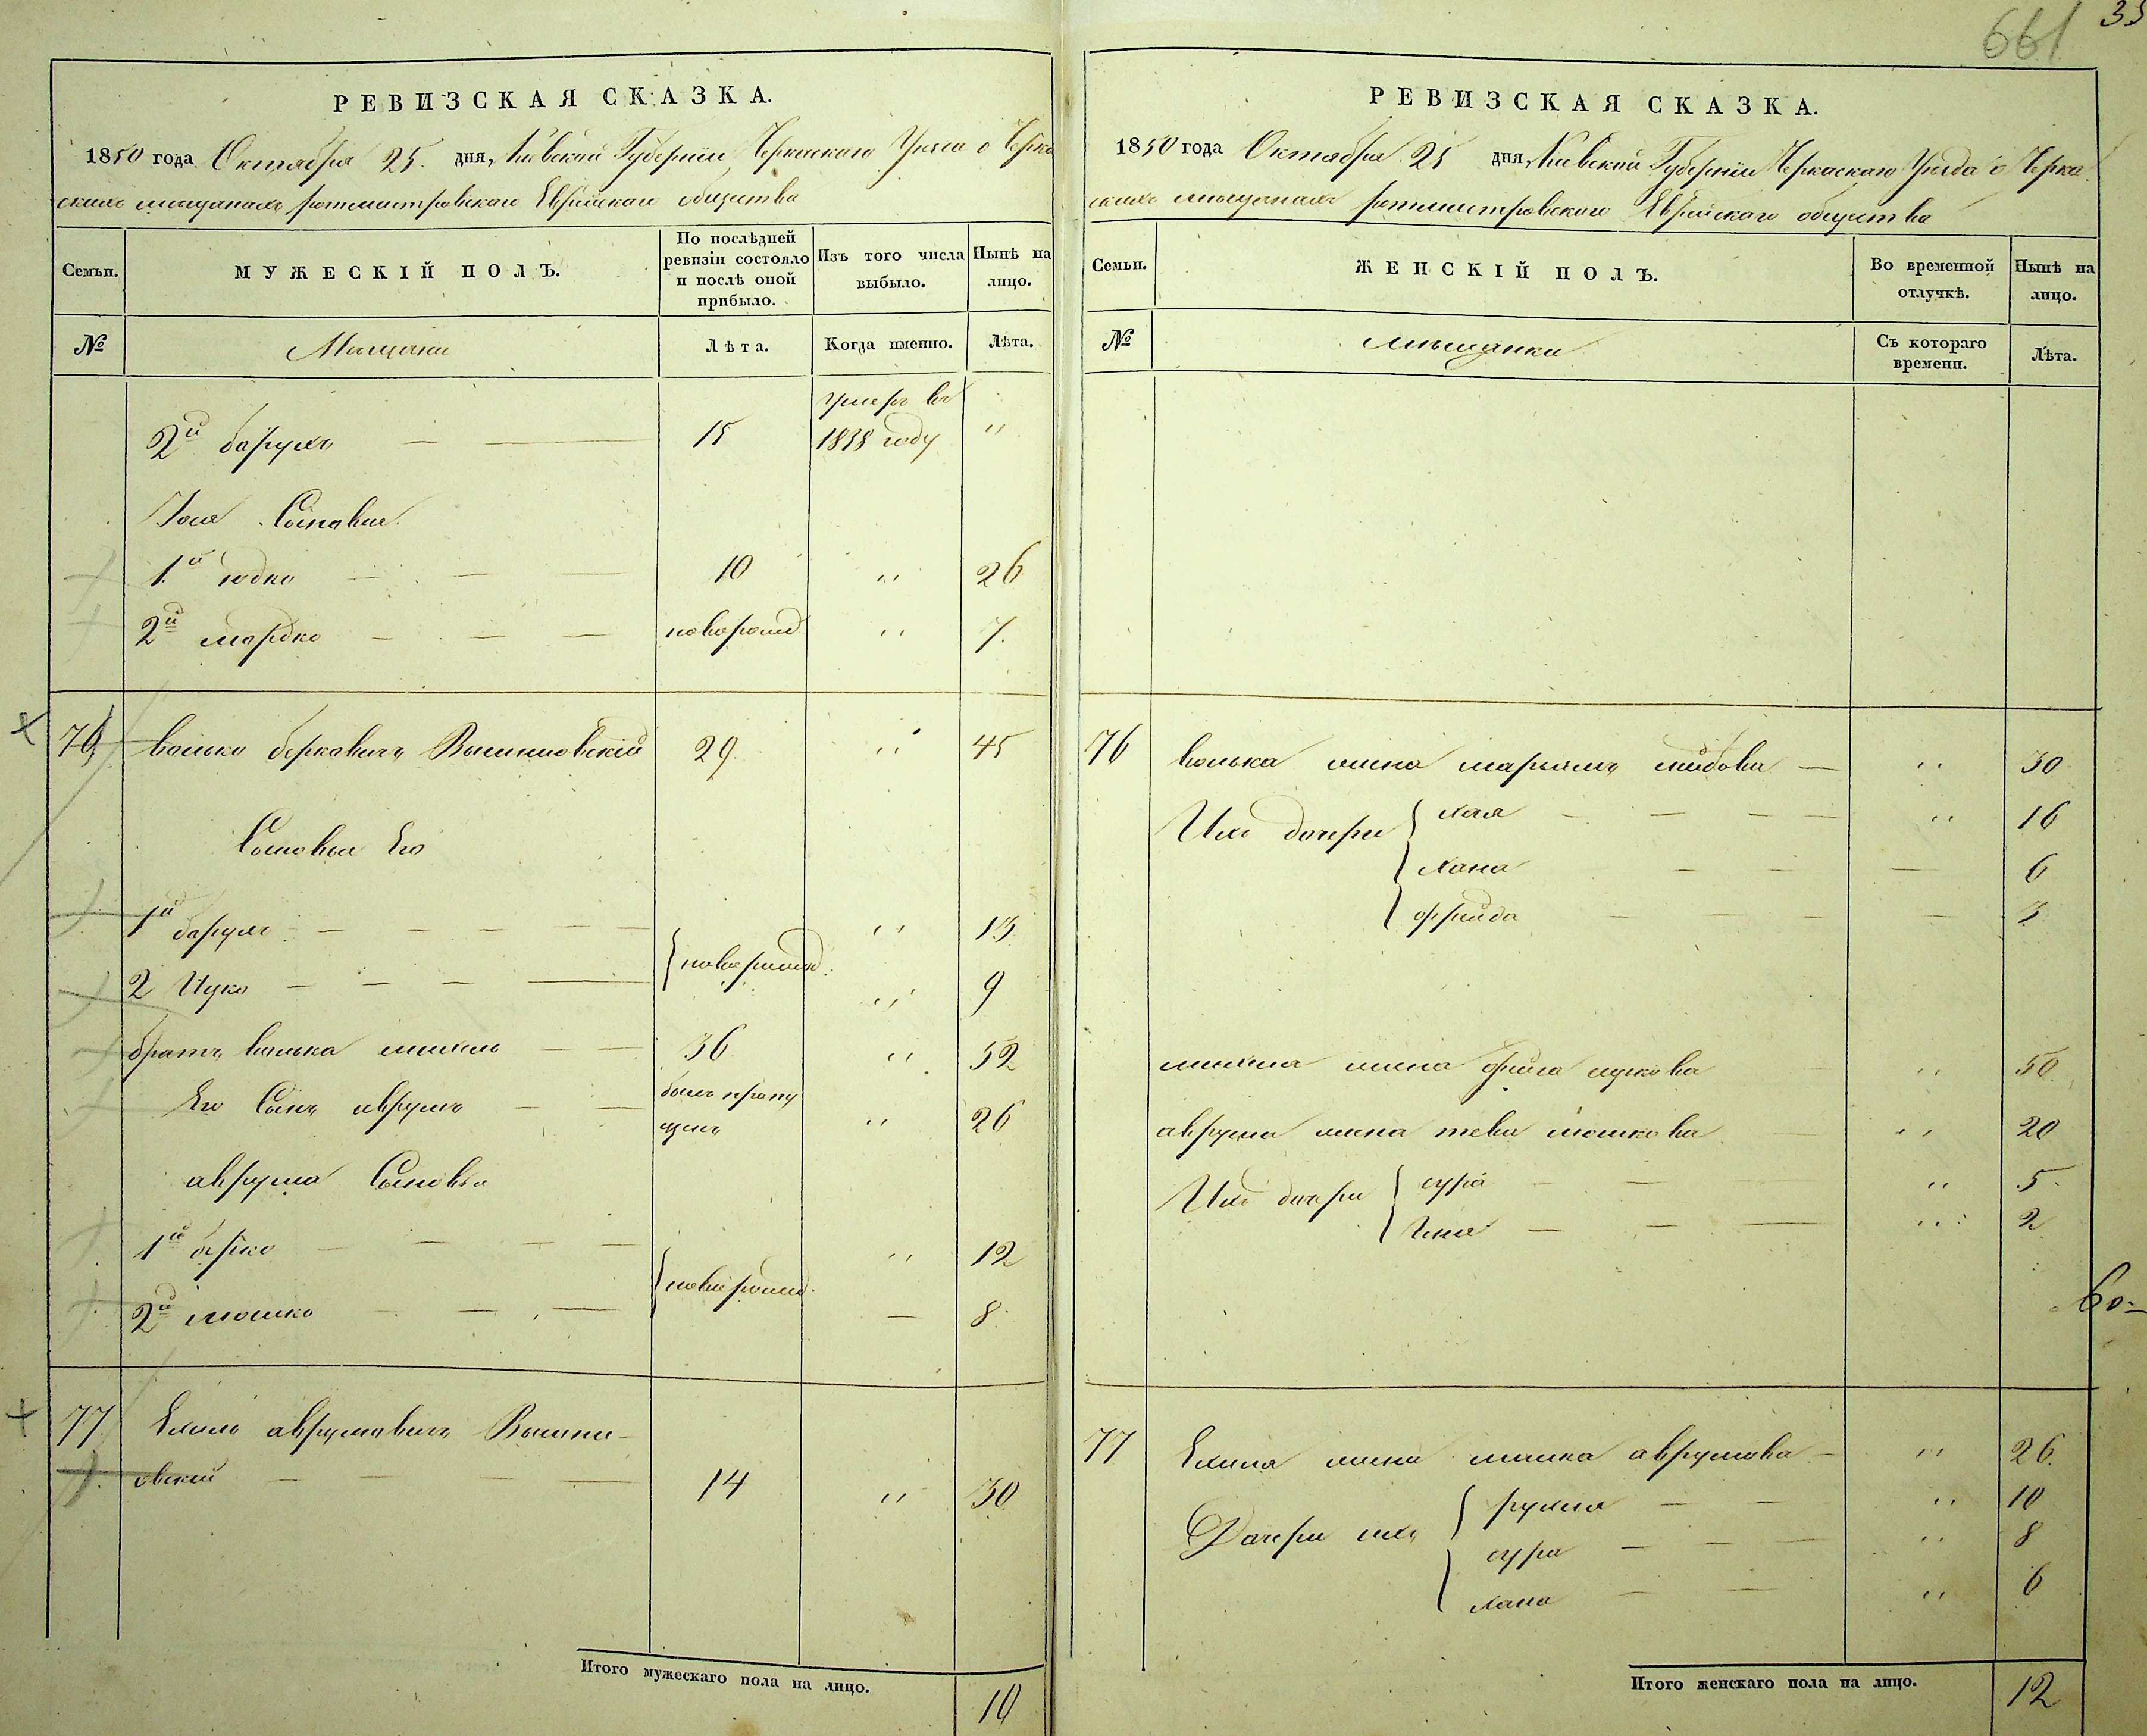 661
33
РЕВИЗСКАЯ СКАЗКА.
1850 года Октября 25. дня, Кіевской Губерніи Черкаскаго Уезда о Черка
скихъ мещанахъ ротмистровскаго Еврейскаго общества
Семьи.
МУЖЕСКІЙ ПОЛЪ.
По послѣдней ревизіи состояло и послѣ оной прибыло.
Изъ того числа выбыло.
Нынѣ на лицо.
№
Мещани
Лѣта.
Когда именно.
Лѣта.
умеръ въ
2й барухъ 15 1838 году "
Сыновья
1й юдко 10 " 26
2й мордко новорожд " 7.
76 волько берковичъ Вышновскій 29. " 45
Сыновья Его
1й барухъ " 13
новорожд.
2 Ицко " 9
братъ волька михель 36 " 52
Его Сынъ аврумъ былъ пропу
щенъ " 26
аврума Сыновья
1й берко " 12
новорожд.
2й мошко — 8.
77 Ехиль аврумовичъ Вышни-
овскій 14 " 30
Итого мужескаго пола на лицо.
10
РЕВИЗСКАЯ СКАЗКА.
1850 года Октября 25 дня, Кіевской Губерніи Черкаскаго Уезда о Черка
скихъ мещанахъ ротмистровскаго Еврейскаго общества
Семьи.
ЖЕНСКІЙ ПОЛЪ.
Во временной отлучкѣ.
Нынѣ на лицо.
№
мещанки
Съ котораго времени.
Лѣта.
76 волька жена марьямъ " 30
Ихъ дочери хая " 16
хана — 6
фрейда — 3
михеля жена ицкова " 50
аврума жена мошкова " 20
Ихъ дочери сура " 5
" 2
77 Ехиля жена аврумова " 26.
Дочери ихъ рухля " 10
сура " 8
хана " 6
Итого женскаго пола на лицо.
12